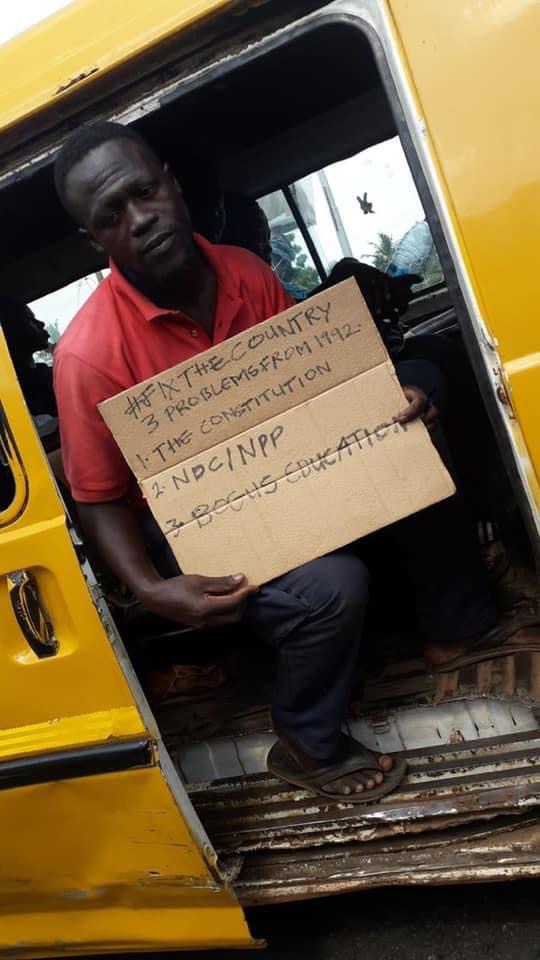 #FIXTHECOUNTRY
3 PROBLEMS FROM 1992.
1. THE CONSTITUTION
2. NDC/NPP
3. BOGUS EDUCATION